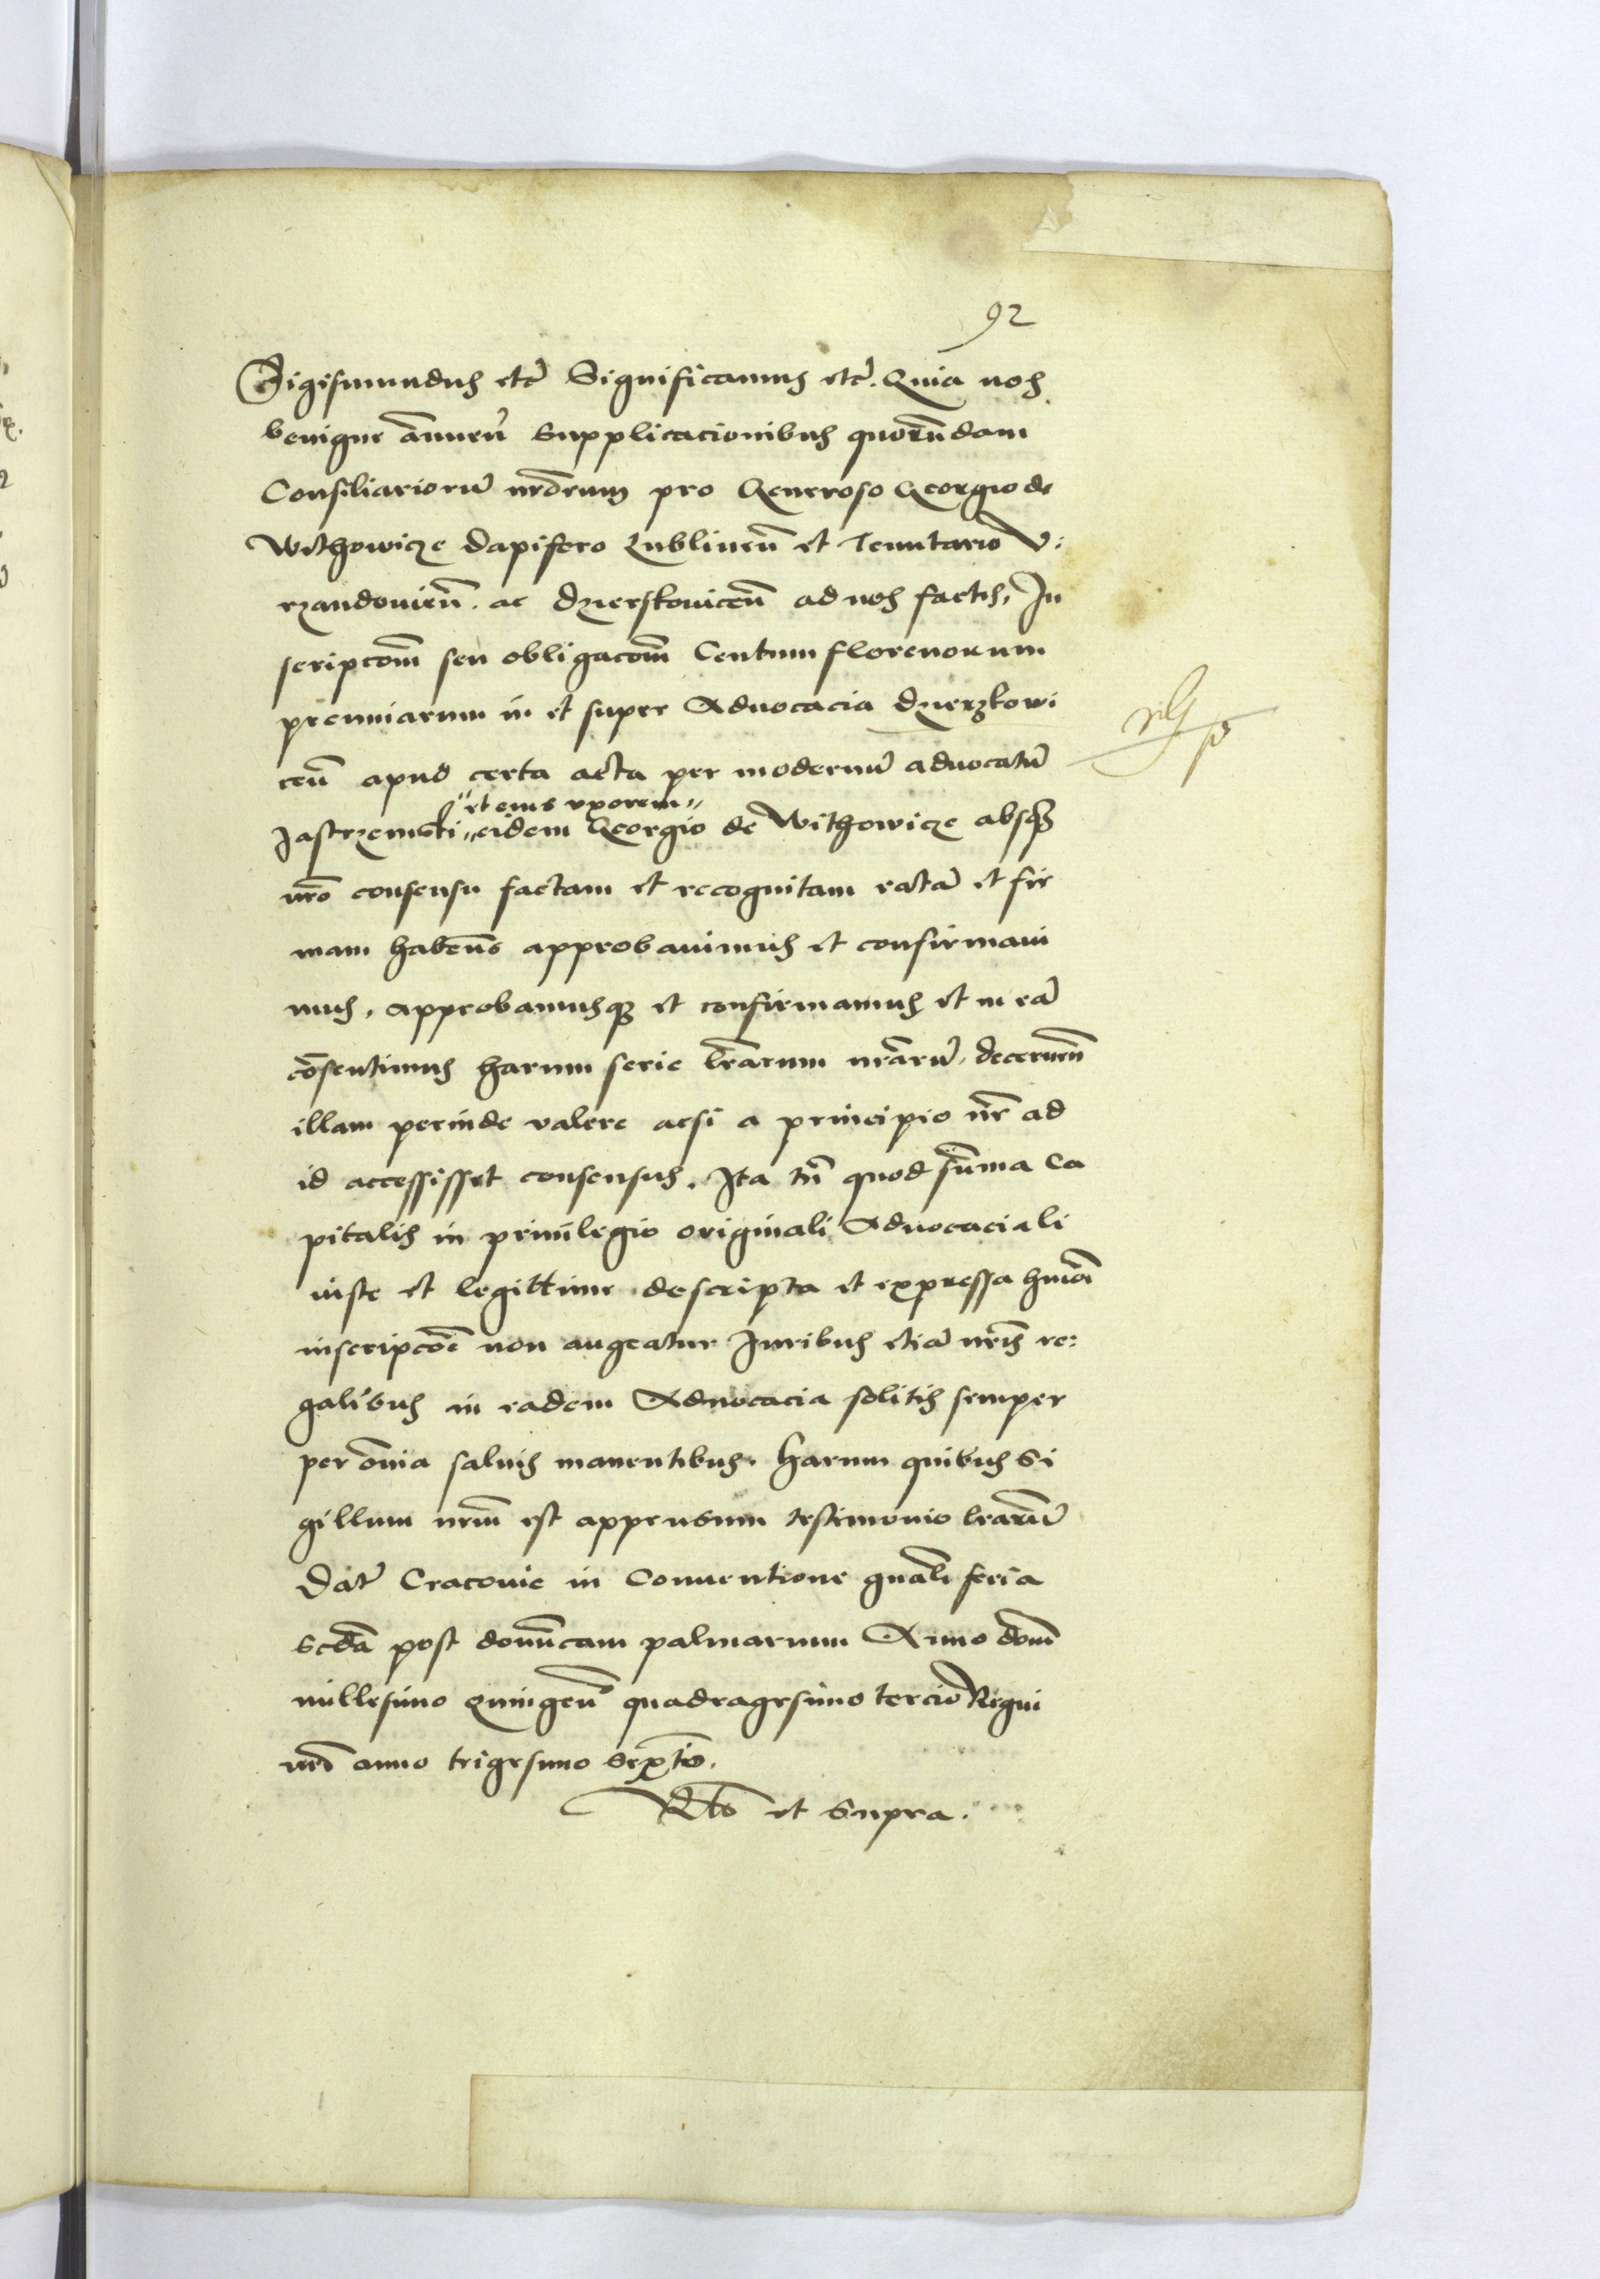 92
Sigismundus etc̃ Significamus etc̃. Quia nos
benigne ãnuen̄ supplicacionibus quorūdam
Consiliariorū nr̄orum pro Generoso Georgio de
Withowicze dapifero Lublineñ et Tenutario V:
rzandovieñ. ac Dzierskoviceñ ad nos factis, In
scripcōm seu obligacōm Centum florenorum
pecuniarum in et super Advocacia Dzierzkowi
ceñ apud certa acta per modernū advocatū
"et eius vxorem"
Jastrzemski "eidem Georgio de Withowicze absq3
nrō consensu factam et recognitam ratā et fir
mam habeñs approbauimus et confirmaui
mus, approbamusq3 et confirmamus et in eā
cōsentimus harum serie lr̄arum nr̄arū, decerneñ
illam perinde valere acsi a principio nr̄ ad
id accessisset consensus. Ita tñ quod sūma ca
pitalis in priuilegio originali Advocaciali
iuste et legittime descripta et expressa hm̄oi
inscripcōe non augeatur Juribus etiā nr̄is re:
galibus in eadem Advocacia solitis semper
per ōmia saluis manentibus. Harum quibus si
gillum nr̄m est appensum testimonio lr̄arū
Dat̄ Cracouie in Conuentione gn̄ali feria
scdā post domīcam palmarum Anno domī
millesimo quingeñ quadragesimo tercio Regni
nr̄i anno trigesimo Sexto.
Rl̄o et supra.